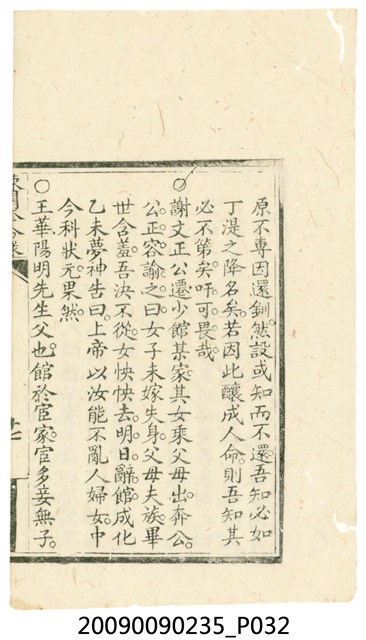 原不專因還釧然設或知而不還。吾知必如
丁湜之降名矣。若因此釀成人命。則吾知其
必不第矣。吁。可畏哉。
○謝文正公遷少館某家。其女乘父母出奔公。
公正容諭之曰。女子未嫁失身。父母夫族。畢
世含羞。吾決不從。女怏怏去。明日。辭館。成化
乙未。夢神告曰。上帝以汝能不亂人婦女。中
今科狀元。果然。
○王華。陽明先生父也。館於宦家。宦多妾無子。
20090090235_P032